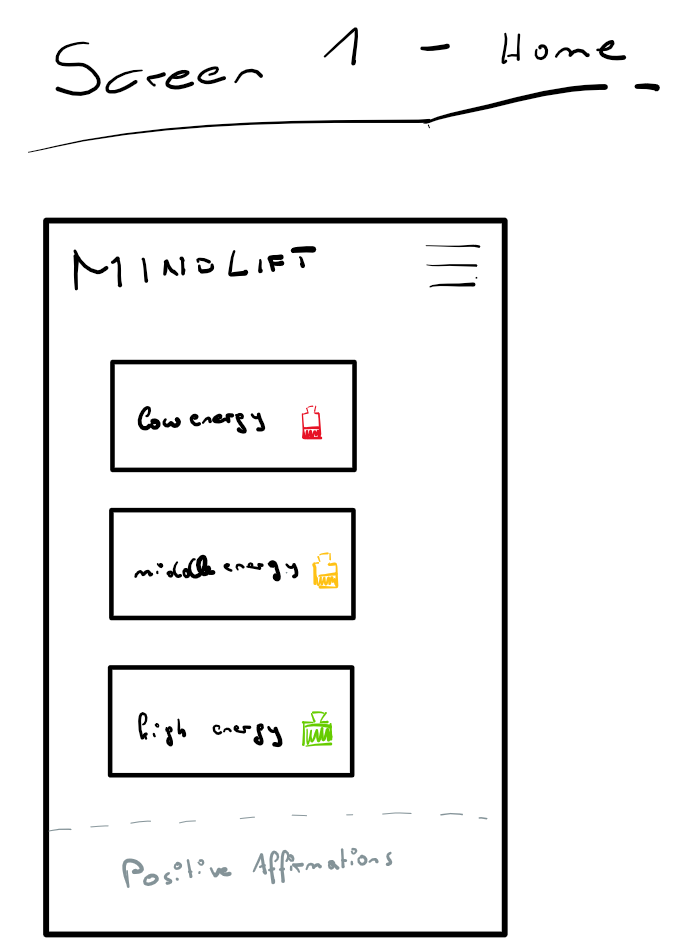 Screen 1 - Home
MINDLIFT
low energy
middle energy
high energy
Positive Affirmations